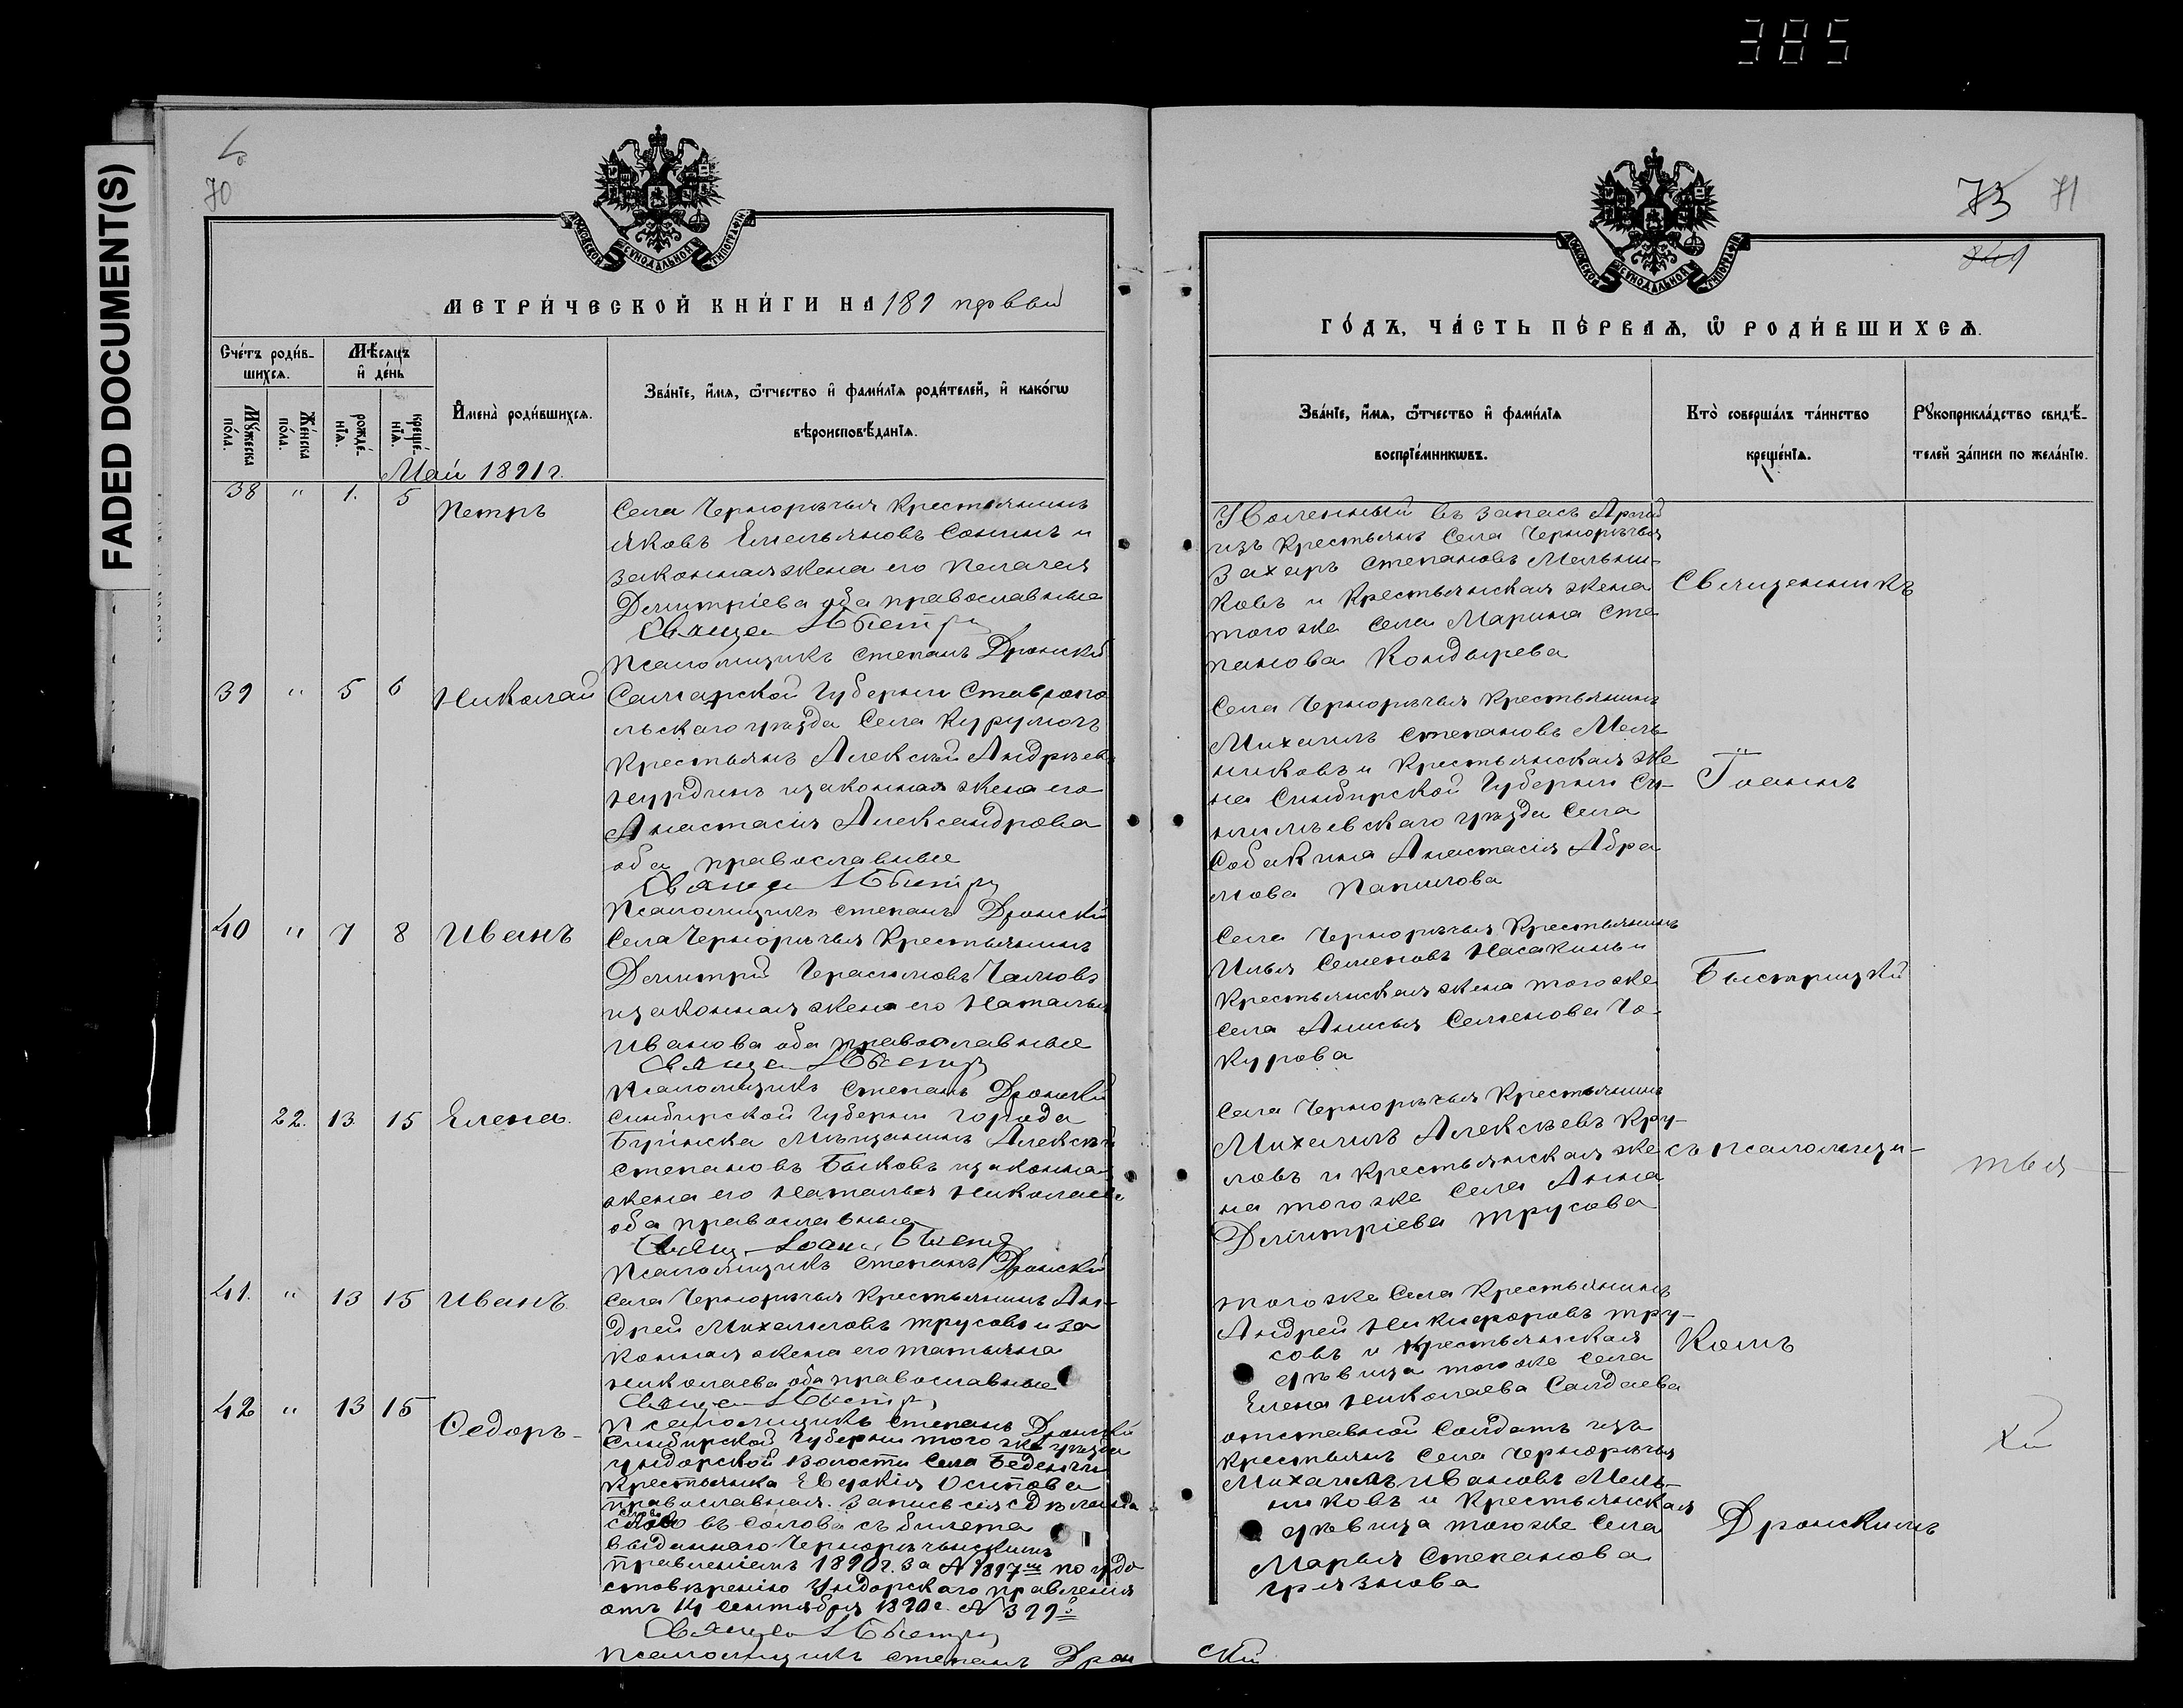 385
FADED DOCUMENT(S)
70
МОСКОВСКОЙ СѴНОДАЛЬНОЙ ТИПОГРАФІИ
МЕТРИ́ЧЕСКОЙ КНИ́ГИ НА 1891 первый
Сче́тъ роди́в-
шихся.
Мѣ́сяцъ
и҆ де́нь
Мꙋ́жеска
по́ла.
Же́нска
по́ла.
рожде́-
нїѧ.
креще́-
нїѧ.
И҆мена̀ роди́вшихсѧ.
Зва́нїе, и҆́мѧ, ѻ҆́тчество и҆ фами́лїѧ роди́телей, и҆ како́гѡ
вѣроисповѣ́данїѧ.
Май 1891 г.
38 " 1. 5 Петръ
Села Чернорѣчья Крестьянинъ
Яковъ Емельяновъ Сонинъ и
законная жена его Пелагея
Димитріева оба православные
Псаломщикъ Степанъ Дронскій
39 " 5 6 Николай
Самарской Губерніи Ставропо
льскаго уѣзда Села Курумочъ
Крестьянъ Алексѣй Андреевъ
Нурдинъ и законная жена его
Анастасія Александрова
оба православные
Псаломщикъ Степанъ Дронскій
40 " 7 8 Иванъ
Села Чернорѣчья Крестьянинъ
Димитрій Герасимовъ Чамовъ
и законная жена его Наталья
Иванова оба православные
Псаломщикъ Степанъ Дронскій
22. 13 15 Елена.
Симбирской Губерніи города
Буинска Мѣщанинъ Алексѣй
Степановъ Быковъ и законная
жена его Наталья Николаева
оба православные
Псаломщикъ Степанъ Дронскій
41. " 13 15 Иванъ
Села Чернорѣчья Крестьянинъ Ан-
дрей Михаиловъ Трусовъ и за
конная жена его Татьяна
Николаева оба православные
42 " 13 15 Ѳедоръ-
Псаломщикъ Степанъ Дронскій
Симбирской Губерніи того же уѣзда
Ундорской Волости Села Беденьги
Крестьянка Евдокія Осипова
православная. Запись сія сдѣлана
слово въ слово съ билета
выданнаго Чернорѣченскимъ
Правленіемъ 1890 г. за № 1897м по удо
стовѣренію Ундорскаго правленія
отъ 14 Сентября 1890 г. № 399.
Псаломщикъ Степанъ Дрон
73 71
МОСКОВСКОЙ СѴНОДАЛЬНОЙ ТИПОГРАФІИ
ГО́ДЪ, ЧА́СТЬ ПЕ́РВАѦ, Ѡ҆ РОДИ́ВШИХСѦ.
Зва́нїе, и҆́мѧ, ѻ҆́тчество и҆ фами́лїѧ
воспрїе́мникѡвъ.
Кто̀ соверша́лъ та́инство
креще́нїѧ.
Рꙋкоприкла́дство свидѣ́-
телей за́писи по жела́нїю.
Уволенный въ запасъ Арміи
изъ Крестьянъ Села Чернорѣчья
Захаръ Степановъ Мельни-
ковъ и Крестьянская жена
того же села Марина Сте
панова Кондырева
Священникъ
Села Чернорѣчья Крестьянинъ
Михаилъ Степановъ Мель
никовъ и Крестьянская же
на Симбирской Губерніи Се-
нгилеевскаго уѣзда Села
Собакина Анастасія Абра
мова Папилова
Іоаннъ
Села Чернорѣчья Крестьянинъ
Илья Семеновъ Насакинъ и
Крестьянская жена того же
Села Анисья Семенова Чо-
курова
Быстрицкій
Села Чернорѣчья Крестьянинъ
Михаилъ Алексѣевъ Кру-
ловъ и крестьянская же
на того же Села Анна
Димитріева Трусова
съ псаломщи-
того же Села Крестьянинъ
Андрей Никифоровъ Тру-
совъ и крестьянская
дѣвица того же села
Елена Николаева Салдаева
Комъ
отставной Солдатъ изъ
крестьянъ Села Чернорѣчья
Михаилъ Ивановъ Мель-
никовъ и Крестьянская
дѣвица того же Села
Марья Степанова
Грязнова
Дронскимъ
скій